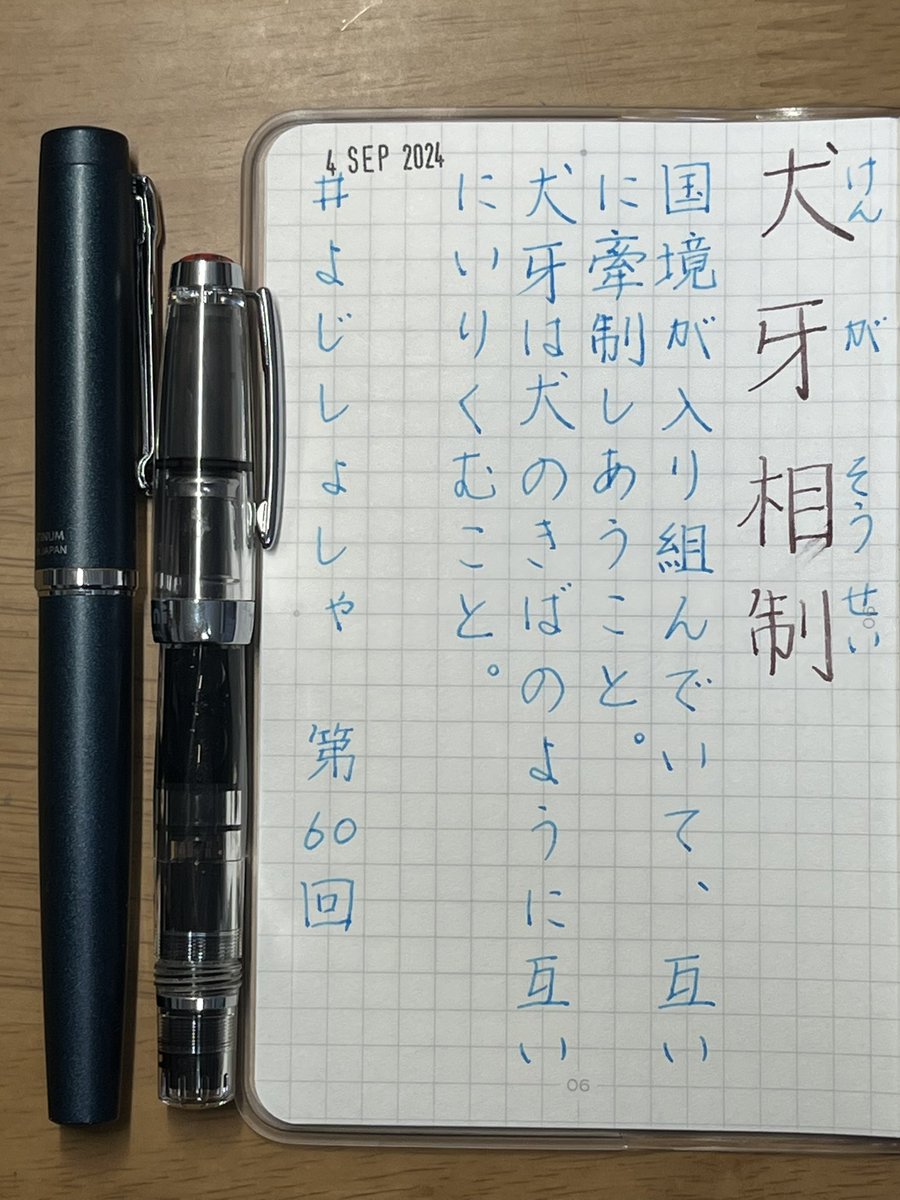 けん が そう せい
犬牙相制
国境が入り組んでいて、互い
に牽制しあうこと。
犬牙は犬のきばのように互い
にいりくむこと。
#よじしょしゃ 第60回
4 SEP 2024
06
JAPAN